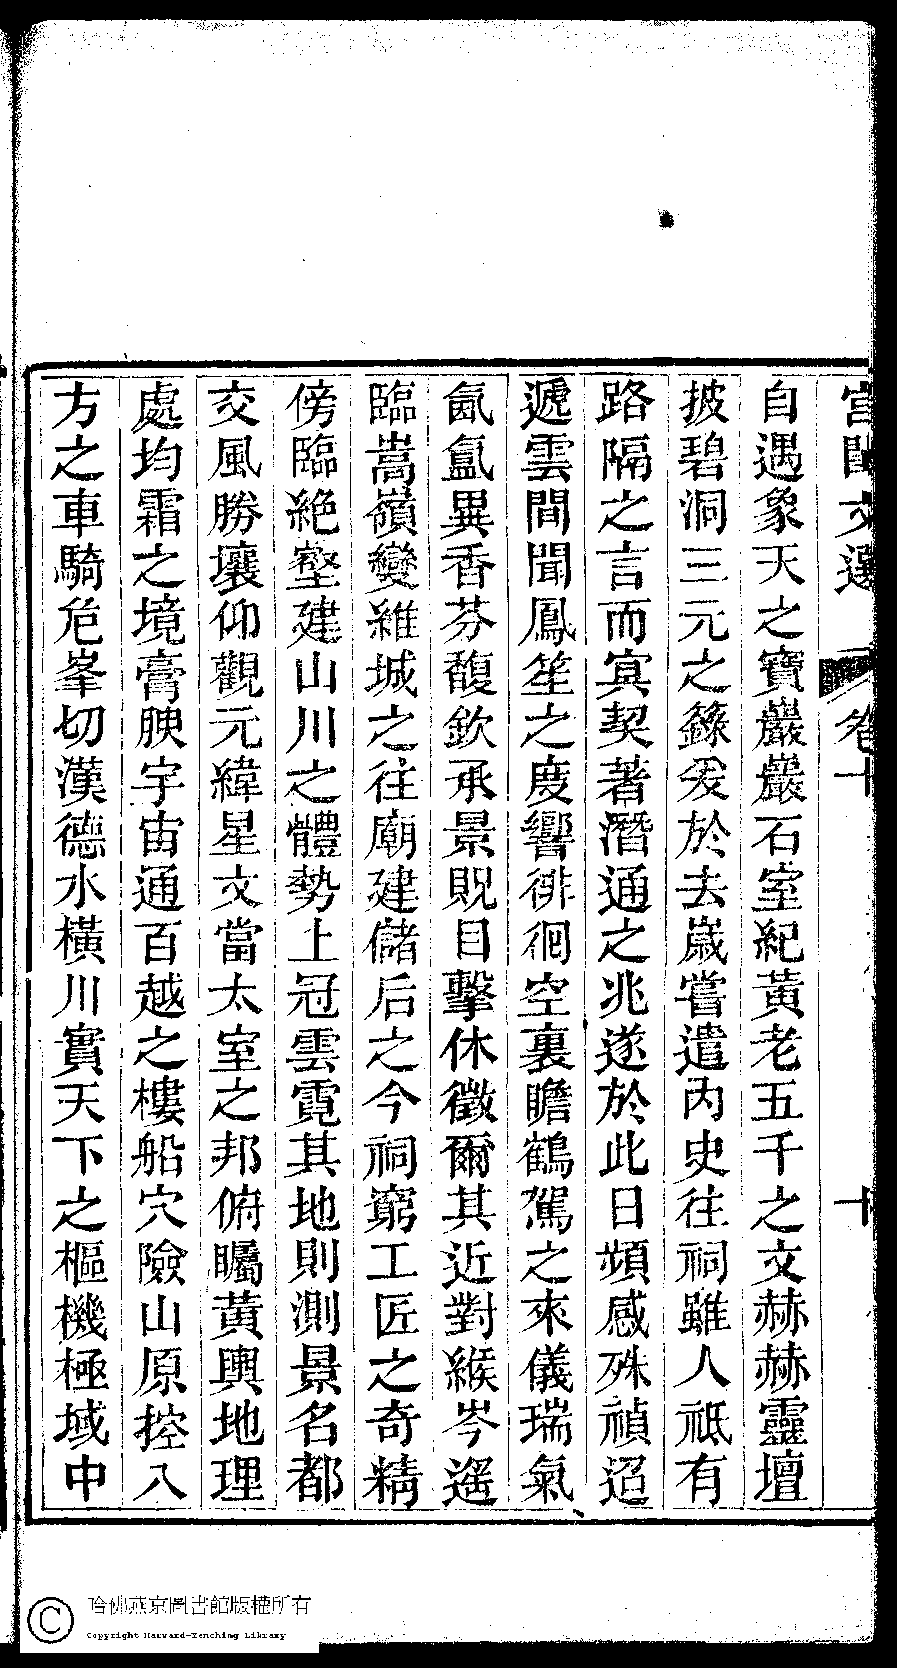 宮閨文選 卷十 十
自遇象天之寶巖巖石室紀黃老五千之文赫赫靈壇
披碧洞三元之籙爰於去歲嘗遣內史往祠雖人祗有
路隔之言而冥契著潛通之兆遂於此日頻感殊禎迢
遞雲間聞鳳笙之度響徘徊空裏瞻鶴駕之來儀瑞氣
氤氳異香芬馥欽承景貺目擊休徵爾其近對緱岑遙
臨嵩嶺變維城之往廟建儲后之今祠窮工匠之奇精
傍臨絶壑建山川之體勢上冠雲霓其地則測景名都
交風勝壤仰觀元緯星文當太室之邦俯矚黃輿地理
處均霜之境膏腴宇宙通百越之樓船穴險山原控八
方之車騎危峯切漢德水橫川實天下之樞機極域中
哈佛燕京圖書館版權所有
Copyright Harvard-Yenching Library